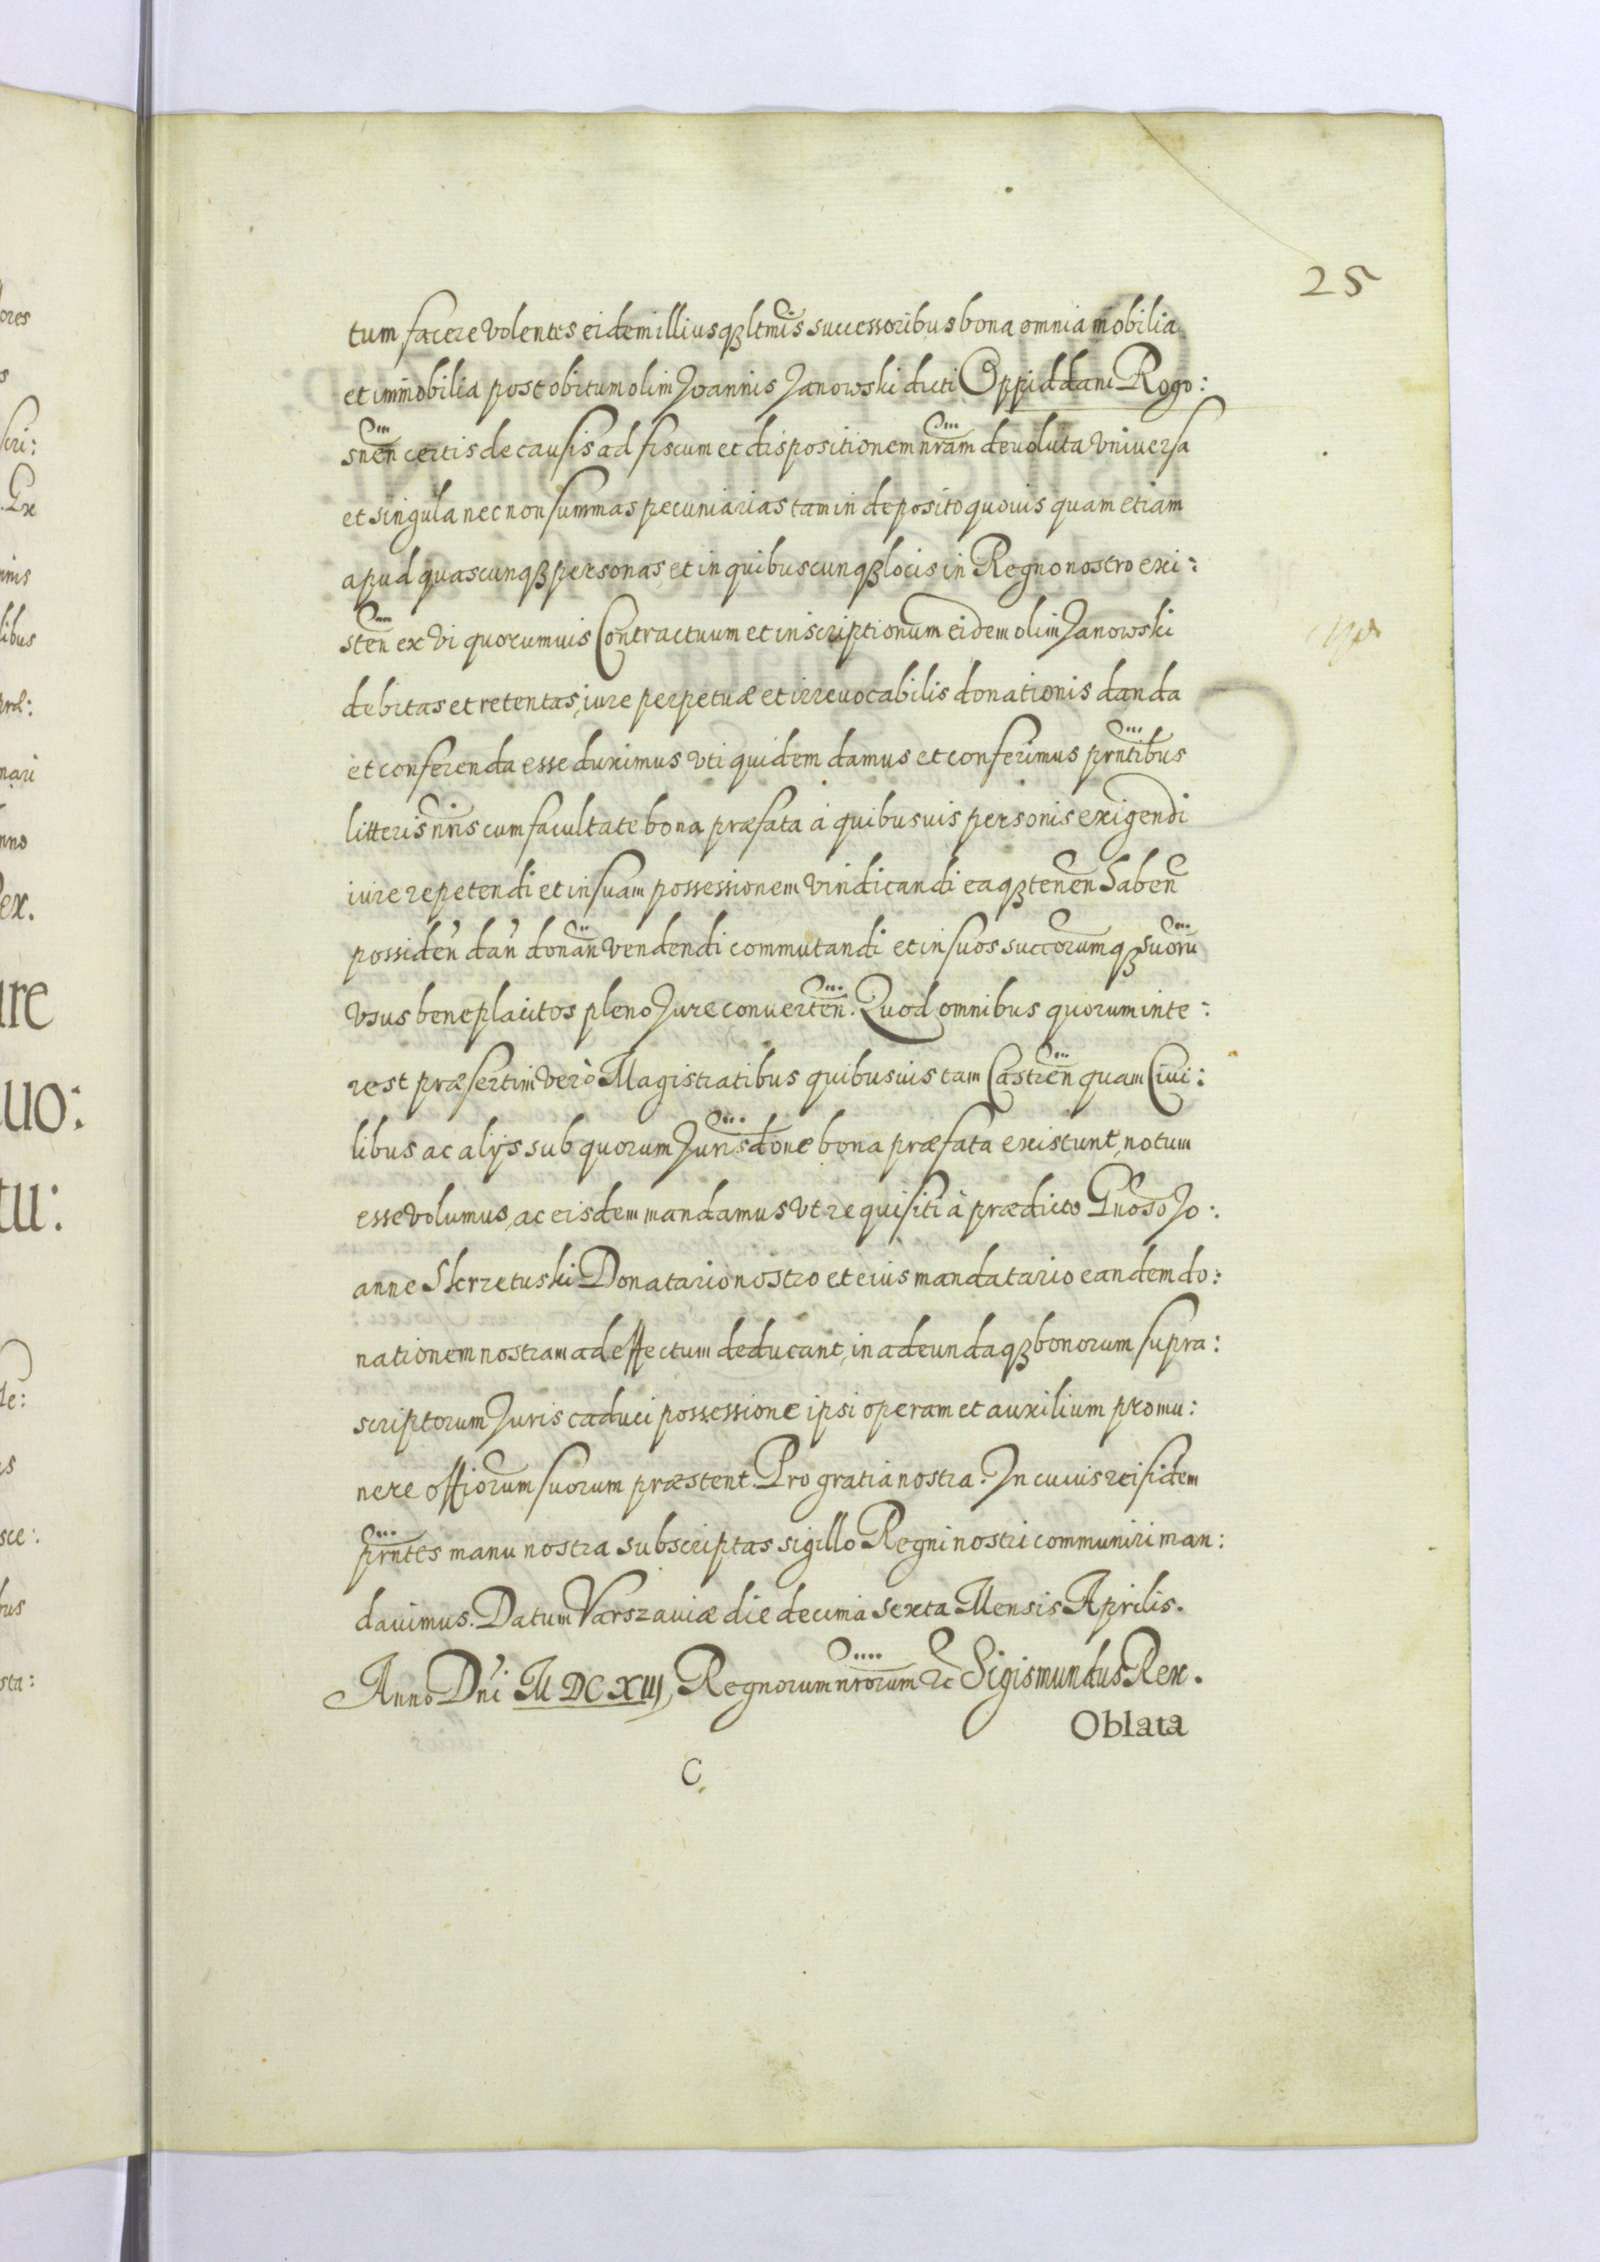 25
tum facere volentes eidem illiusqꝫ ltmis successoribus bona omnia mobilia
et immobilia post obitum olim Joannis Janowski dicti Oppiddani Rogo:
snen̄ certis de causis ad fiscum et dispositionem nr̄am devoluta vniversa
et singula nec non summas pecuniarias tam in deposito quovis quam etiam
apud quascunqꝫ personas, et in quibuscunqꝫ locis in Regno nostro exi:
sten̄ ex vi quorumvis Contractuum et inscriptionum eidem olim Janowski
debitas et retentas, iure perpetuæ et irrevocabilis donationis danda
et conferenda esse duximus vti quidem damus et conferimus prn̄tibus
litteris nr̄is cum facultate bona præfata à quibusuis personis exigendi
iure repetendi et in suam possessionem vindicandi eaqꝫ tenen̄ haben̄
possiden̄ dan̄ donan̄ vendendi commutandi et in suos succorumqꝫ suorū
vsus beneplacitos pleno Jure conuerten̄. Quod omnibus quorum inte:
rest præsertim verò Magistratibus quibusuis tam Castren̄ quam Ciui:
libus ac alijs sub quorum Jurisdone bona præfata existunt, notum
esse volumus, ac eisdem mandamus vt requisiti à prædicto Gnoso Jo:
anne Skrzetuski Donatario nostro et eius mandatario eandem do:
nationem nostram ad effectum deducant, in adeundaqꝫ bonorum supra:
scriptorum Juris caduci possessione ipsi operam et auxilium pro mu:
nere offiorum suorum præstent. Pro gratia nostra. In cuius rei fidem
prn̄tes manu nostra subscriptas sigillo Regni nostri communiri man:
davimus. Datum Varszaviæ die decima sexta Mensis Aprilis.
Anno Dn̄i M DC XIIJ, Regnorum nr̄orum ꝛc Sigismundus Rex.
Oblata
C